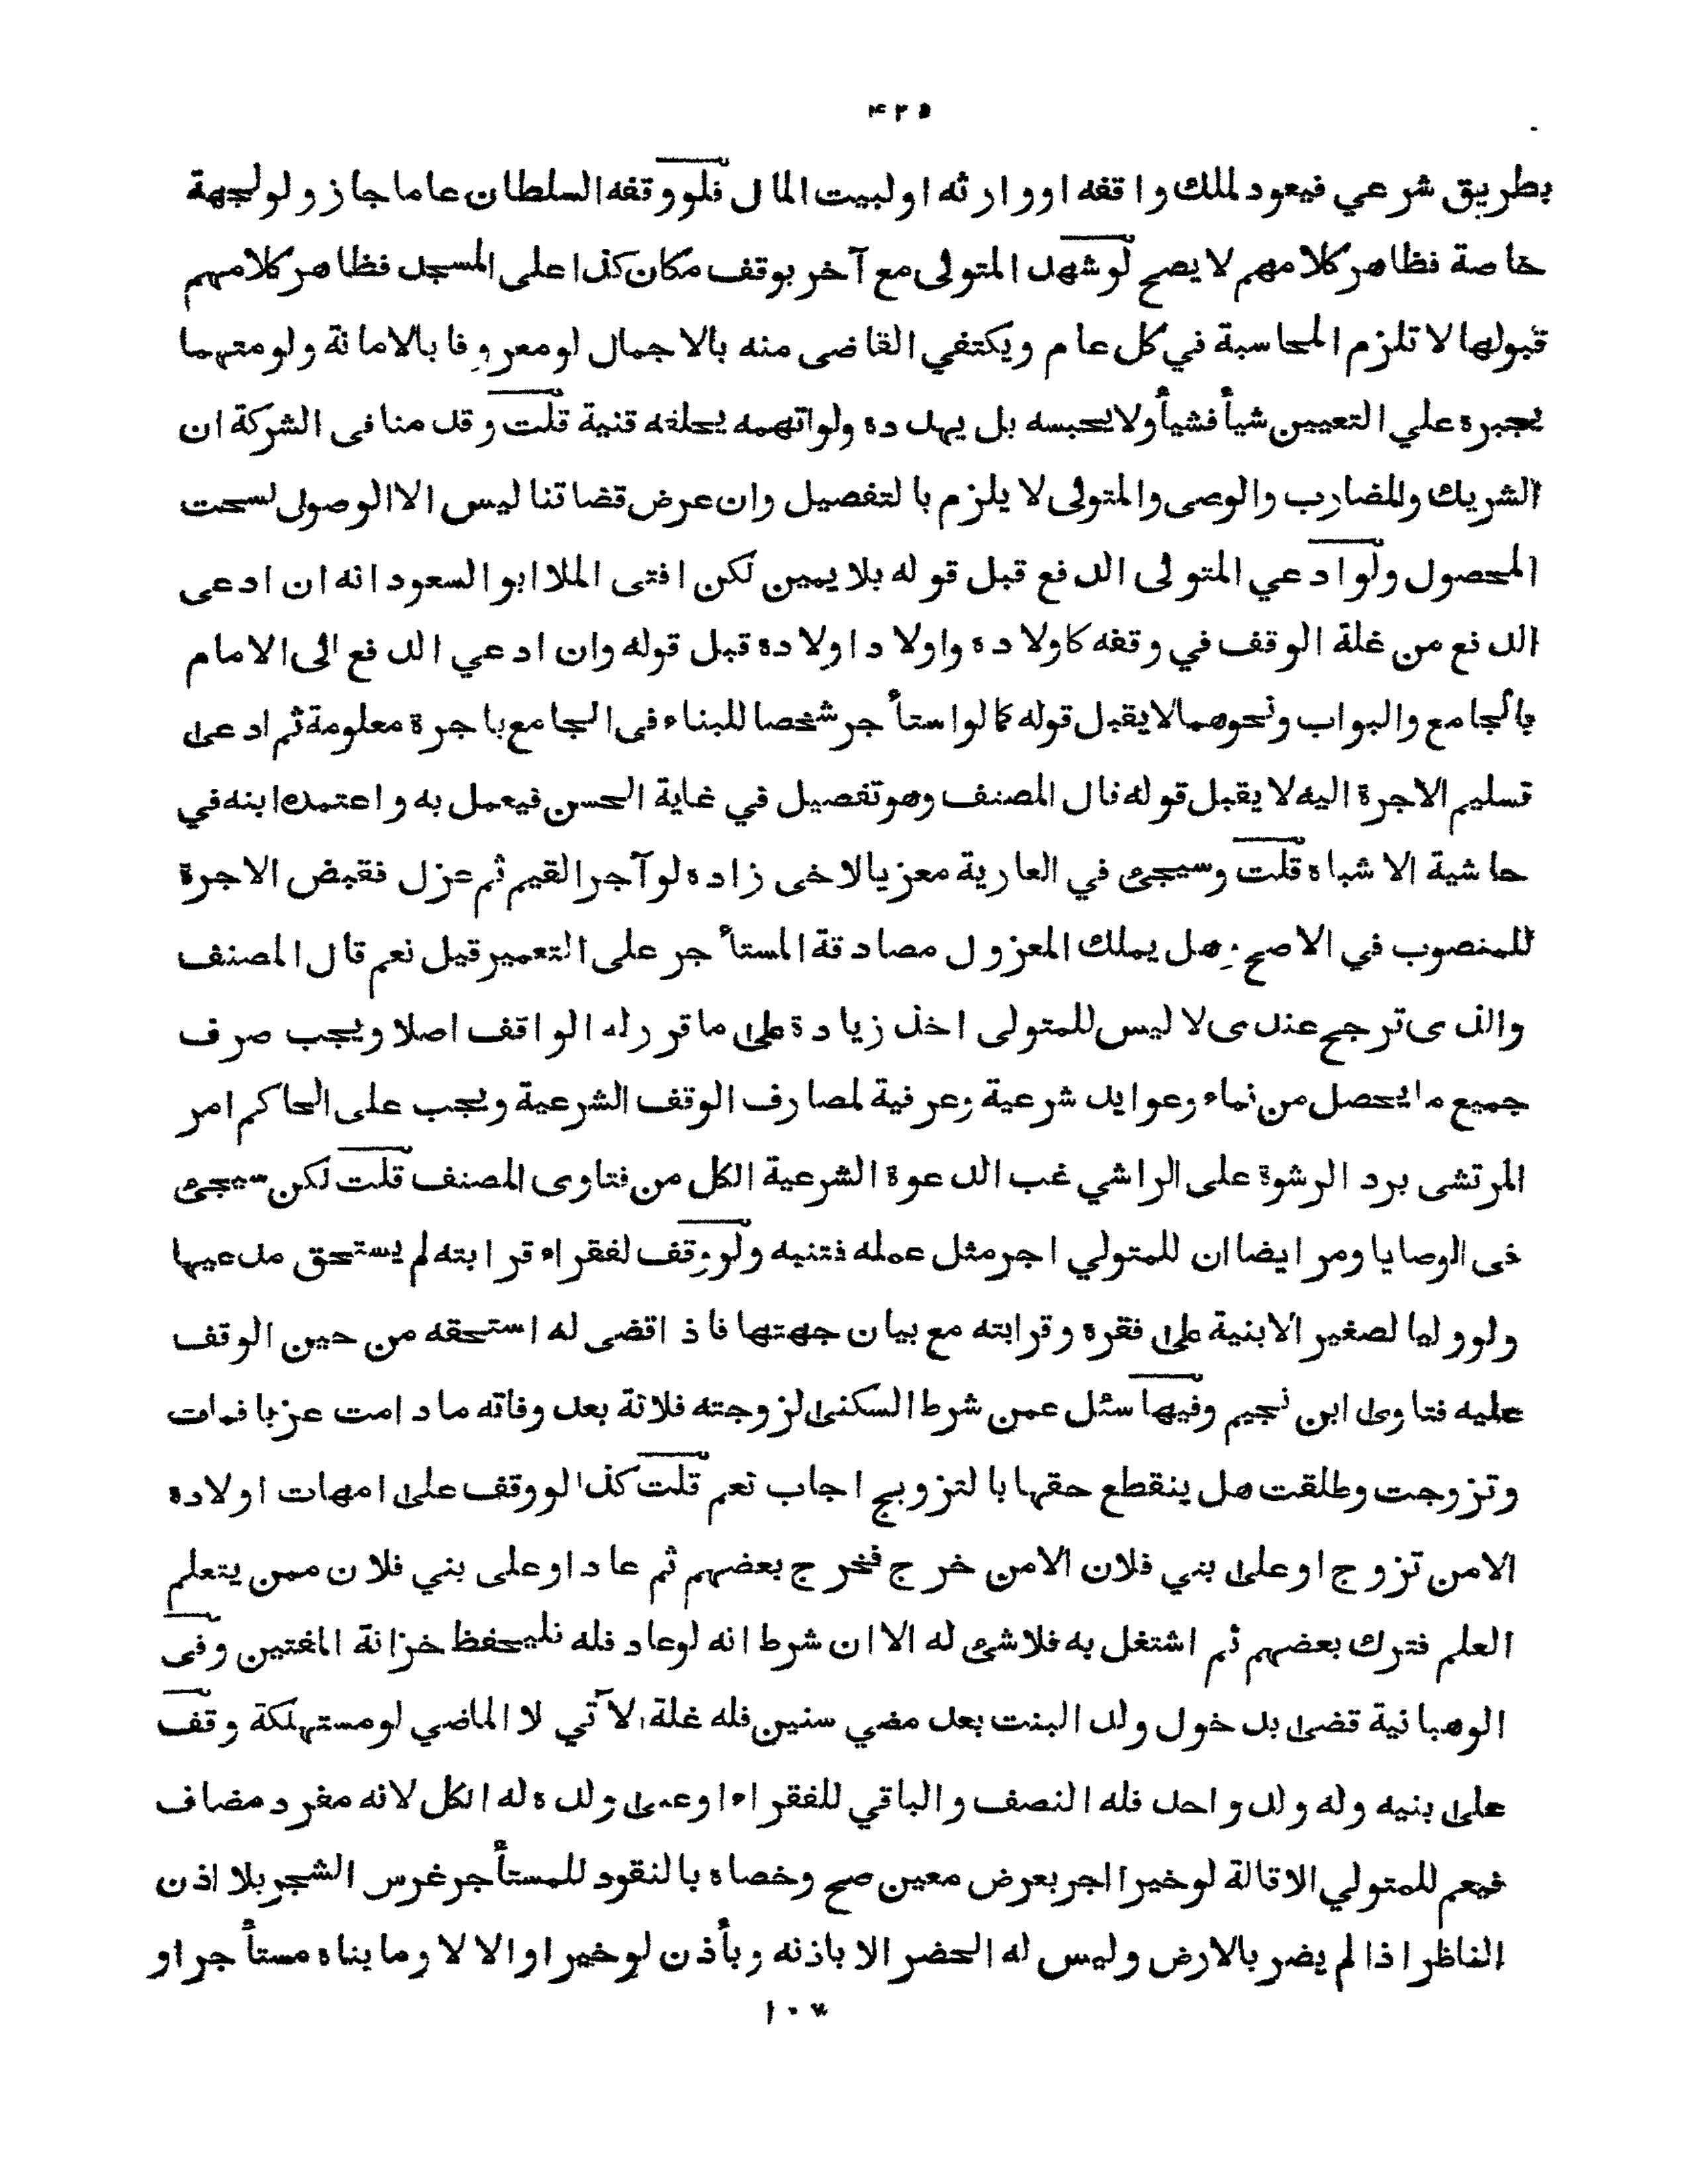 ۴۲۵
بطريق شرعي فيعود لملك واقفه اووارثه اولبيت المال فلووقفه السلطان عاما جاز ولولجهة
خاصة فظاهركلامهم لايصح لوشهد المتولى مع آخر بوقف مكان كذا على المسجد فظاهركلامهم
قبولها لا تلزم المحاسبة في كل عام ويكتفي القاضى منه بالاجمال لومعروفا بالامانة ولومتهما
يجبره علي التعيين شيأ فشيأ ولايحبسه بل يهدده ولواتهمه يحلفه قنية قلت وقدمنا فى الشركة ان
الشريك والمضارب والوصى والمتولى لا يلزم بالتفصيل وان عرض قضاتنا ليس الا الوصول لسحت
المحصول ولوادعي المتولى الدفع قبل قوله بلا يمين لكن افتى الملا ابوالسعود انه ان ادعى
الدفع من غلة الوقف في وقفه كاولاده واولاد اولاده قبل قوله وان ادعي الدفع الى الامام
بالجامع والبواب ونحوهما لايقبل قوله كما لواستأجر شخصا للبناء فى الجامع باجرة معلومة ثم ادعى
تسليم الاجرة اليه لا يقبل قوله قال المصنف وهوتفصيل في غاية الحسن فيعمل به واعتمده ابنه في
حاشية الاشباه قلت وسيجئ في العارية معزيالاخى زاده لوآجر القيم ثم عزل فقبض الاجرة
للمنصوب في الاصح وهل يملك المعزول مصادقة المستأجر على التعمير قيل نعم قال المصنف
والذى ترجح عندى لا ليس للمتولى اخذ زيادة على ما قرر له الواقف اصلا ويجب صرف
جميع ما يحصل من نماء وعوايد شرعية وعرفية لمصارف الوقف الشرعية ويجب على الحاكم امر
المرتشى برد الرشوة على الراشي غب الدعوة الشرعية الكل من فتاوى المصنف قلت لكن سيجئ
فى الوصايا ومر ايضا ان للمتولي اجرمثل عمله فتنبه ولووقف لفقراء قرابته لم يستحق مدعيها
ولووليا لصغير الابنية على فقره وقرابته مع بيان جهتها فاذ اقضى له استحقه من حين الوقف
عليه فتاوى ابن نجيم وفيها سئل عمن شرط السكنى لزوجته فلانة بعد وفاته مادامت عزبا فمات
وتزوجت وطلقت هل ينقطع حقها بالتزويج اجاب نعم قلت كذا لووقف على امهات اولاده
الامن تزوج اوعلى بني فلان الامن خرج فخرج بعضهم ثم عاد اوعلى بني فلان ممن يتعلم
العلم فترك بعضهم ثم اشتغل به فلاشئ له الا ان شرط انه لوعاد فله فليحفظ خزانة المفتين وفى
الوهبانية قضى بدخول ولد البنت بعد مضي سنين فله غلة الآتي لا الماضي لومستهلكة وقف
على بنيه وله ولد واحد فله النصف والباقي للفقراء اوعلى ولده له الكل لانه مفرد مضاف
فيعم للمتولي الاقالة لوخيرا اجربعرض معين صح وخصاه بالنقود للمستأجر غرس الشجر بلا اذن
الناظر اذا لم يضر بالارض وليس له الحضر الا باذنه وبأذن لوخيرا والا لا وما بناه مستأجر او
۱۰۷